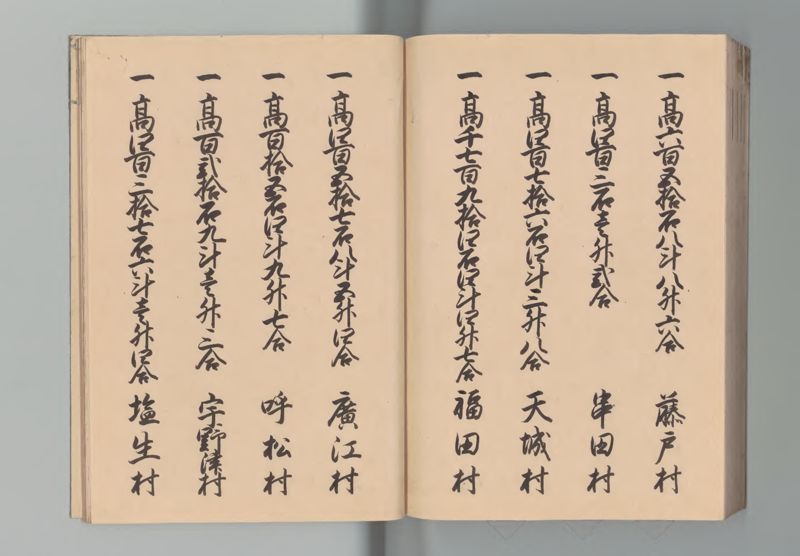 一 高六百五拾石八斗八升六合 藤戸村
一 高四百二石壱升弐合 串田村
一 高四百七拾六石四斗三升八合 天城村
一 高千七百九拾四石四斗四升七合 福田村
一 高四百五拾七石八斗五升四合 廣江村
一 高百拾五石四斗九升七合 呼松村
一 高百弐拾石九斗壱升二合 宇野津村
一 高四百二拾七石六斗壱升四合 塩生村